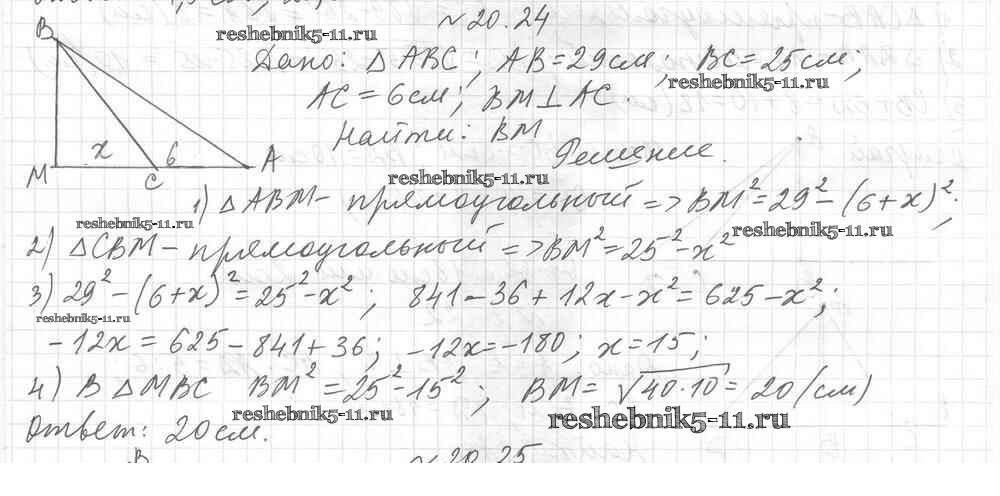 №20.24
reshebnik5-11.ru
B
Дано: △ABC; AB=29см; BC=25см;
reshebnik5-11.ru
AC=6см; BM⊥AC.
Найти: BM
x 6 A
Решение.
M C
reshebnik5-11.ru
1) △ABM- прямоугольный => BM²=29²-(6+x)²;
reshebnik5-11.ru
reshebnik5-11.ru
2) △CBM- прямоугольный => BM²=25²-x²
3) 29²-(6+x)²=25²-x²; 841-36+12x-x²=625-x²;
reshebnik5-11.ru
-12x=625-841+36; -12x=-180; x=15;
4) В △MBC BM²=25²-15²; BM=√40·10=20(см)
reshebnik5-11.ru
reshebnik5-11.ru
Ответ: 20см.
B №20.25